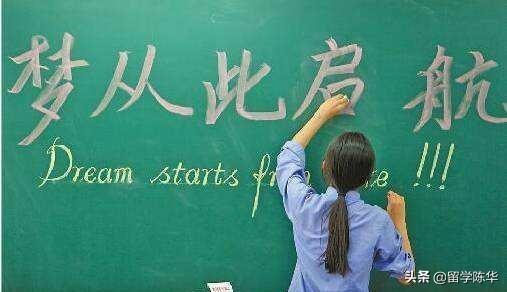 梦从此启航
Dream starts !!!
头条 @留学陈华